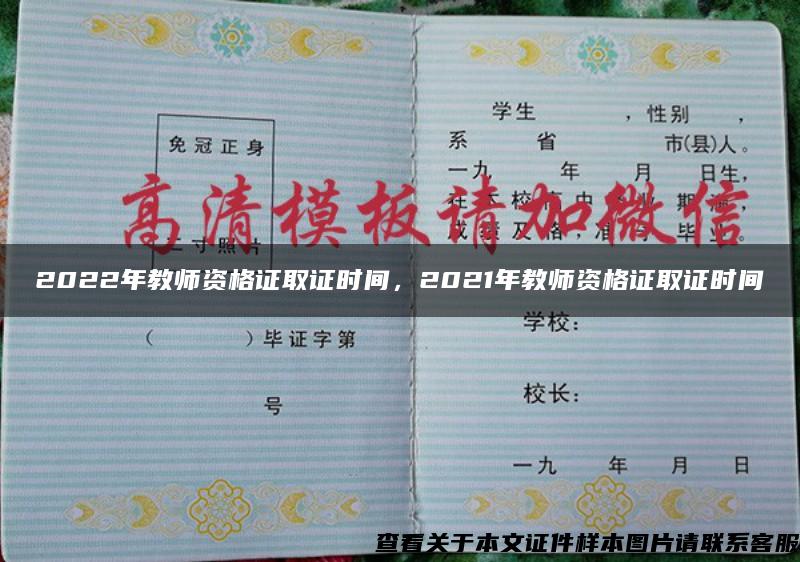 免冠正身
二寸照片
（　　）毕证字第
号
学生　　，性别　，
系　　省　　市(县)人。
一九　　年　　月　　日生，
在　校　中　业　期满，
成绩及格，准予毕业。
高清模板请加微信
2022年教师资格证取证时间，2021年教师资格证取证时间
学校：
校长：
一九　年　月　日
查看关于本文证件样本图片请联系客服